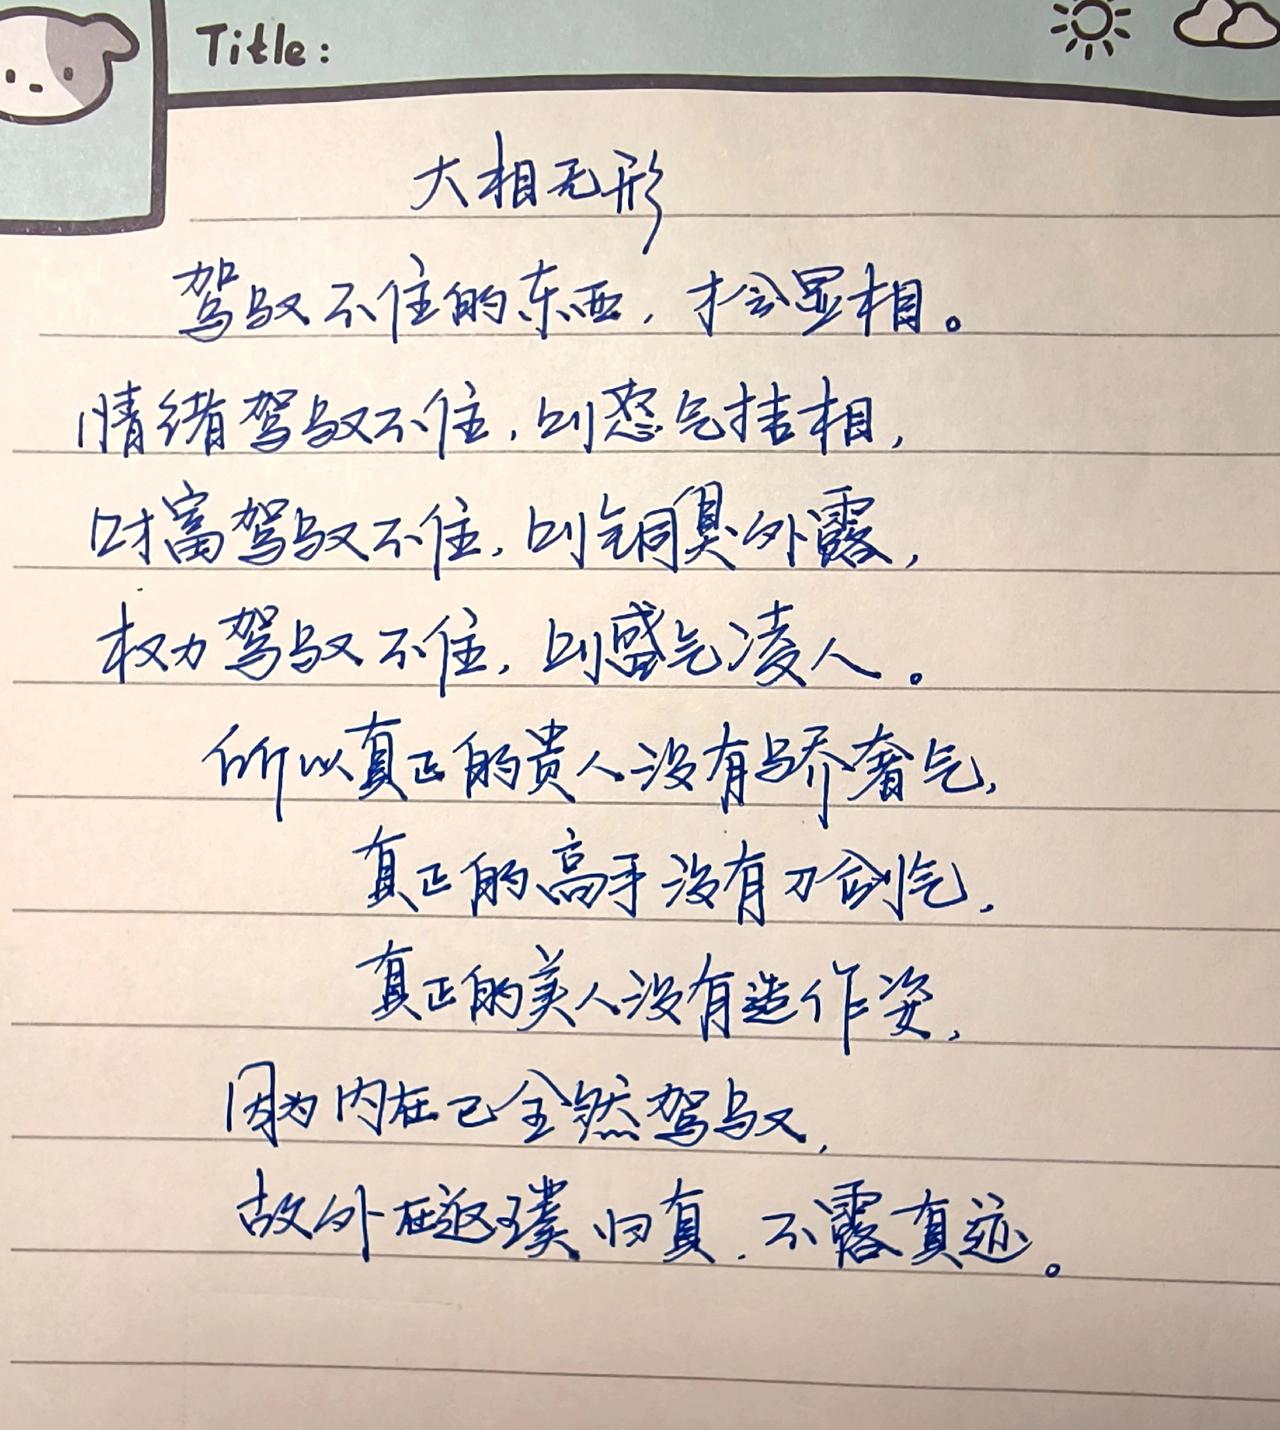 Title:
大相无形
驾驭不住的东西，才会显相。
情绪驾驭不住，则怒气挂相，
财富驾驭不住，则铜臭外露，
权力驾驭不住，则盛气凌人。
所以真正的贵人没有骄奢气，
真正的高手没有刀剑气，
真正的美人没有造作姿，
因为内在已全然驾驭，
故外在返璞归真，不露真迹。